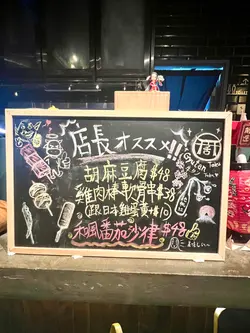 店長オススメ!!
胡麻豆腐$48
雞肉棒軟骨串$58
跟日本雞蛋黃+$10
和風番茄沙律$48